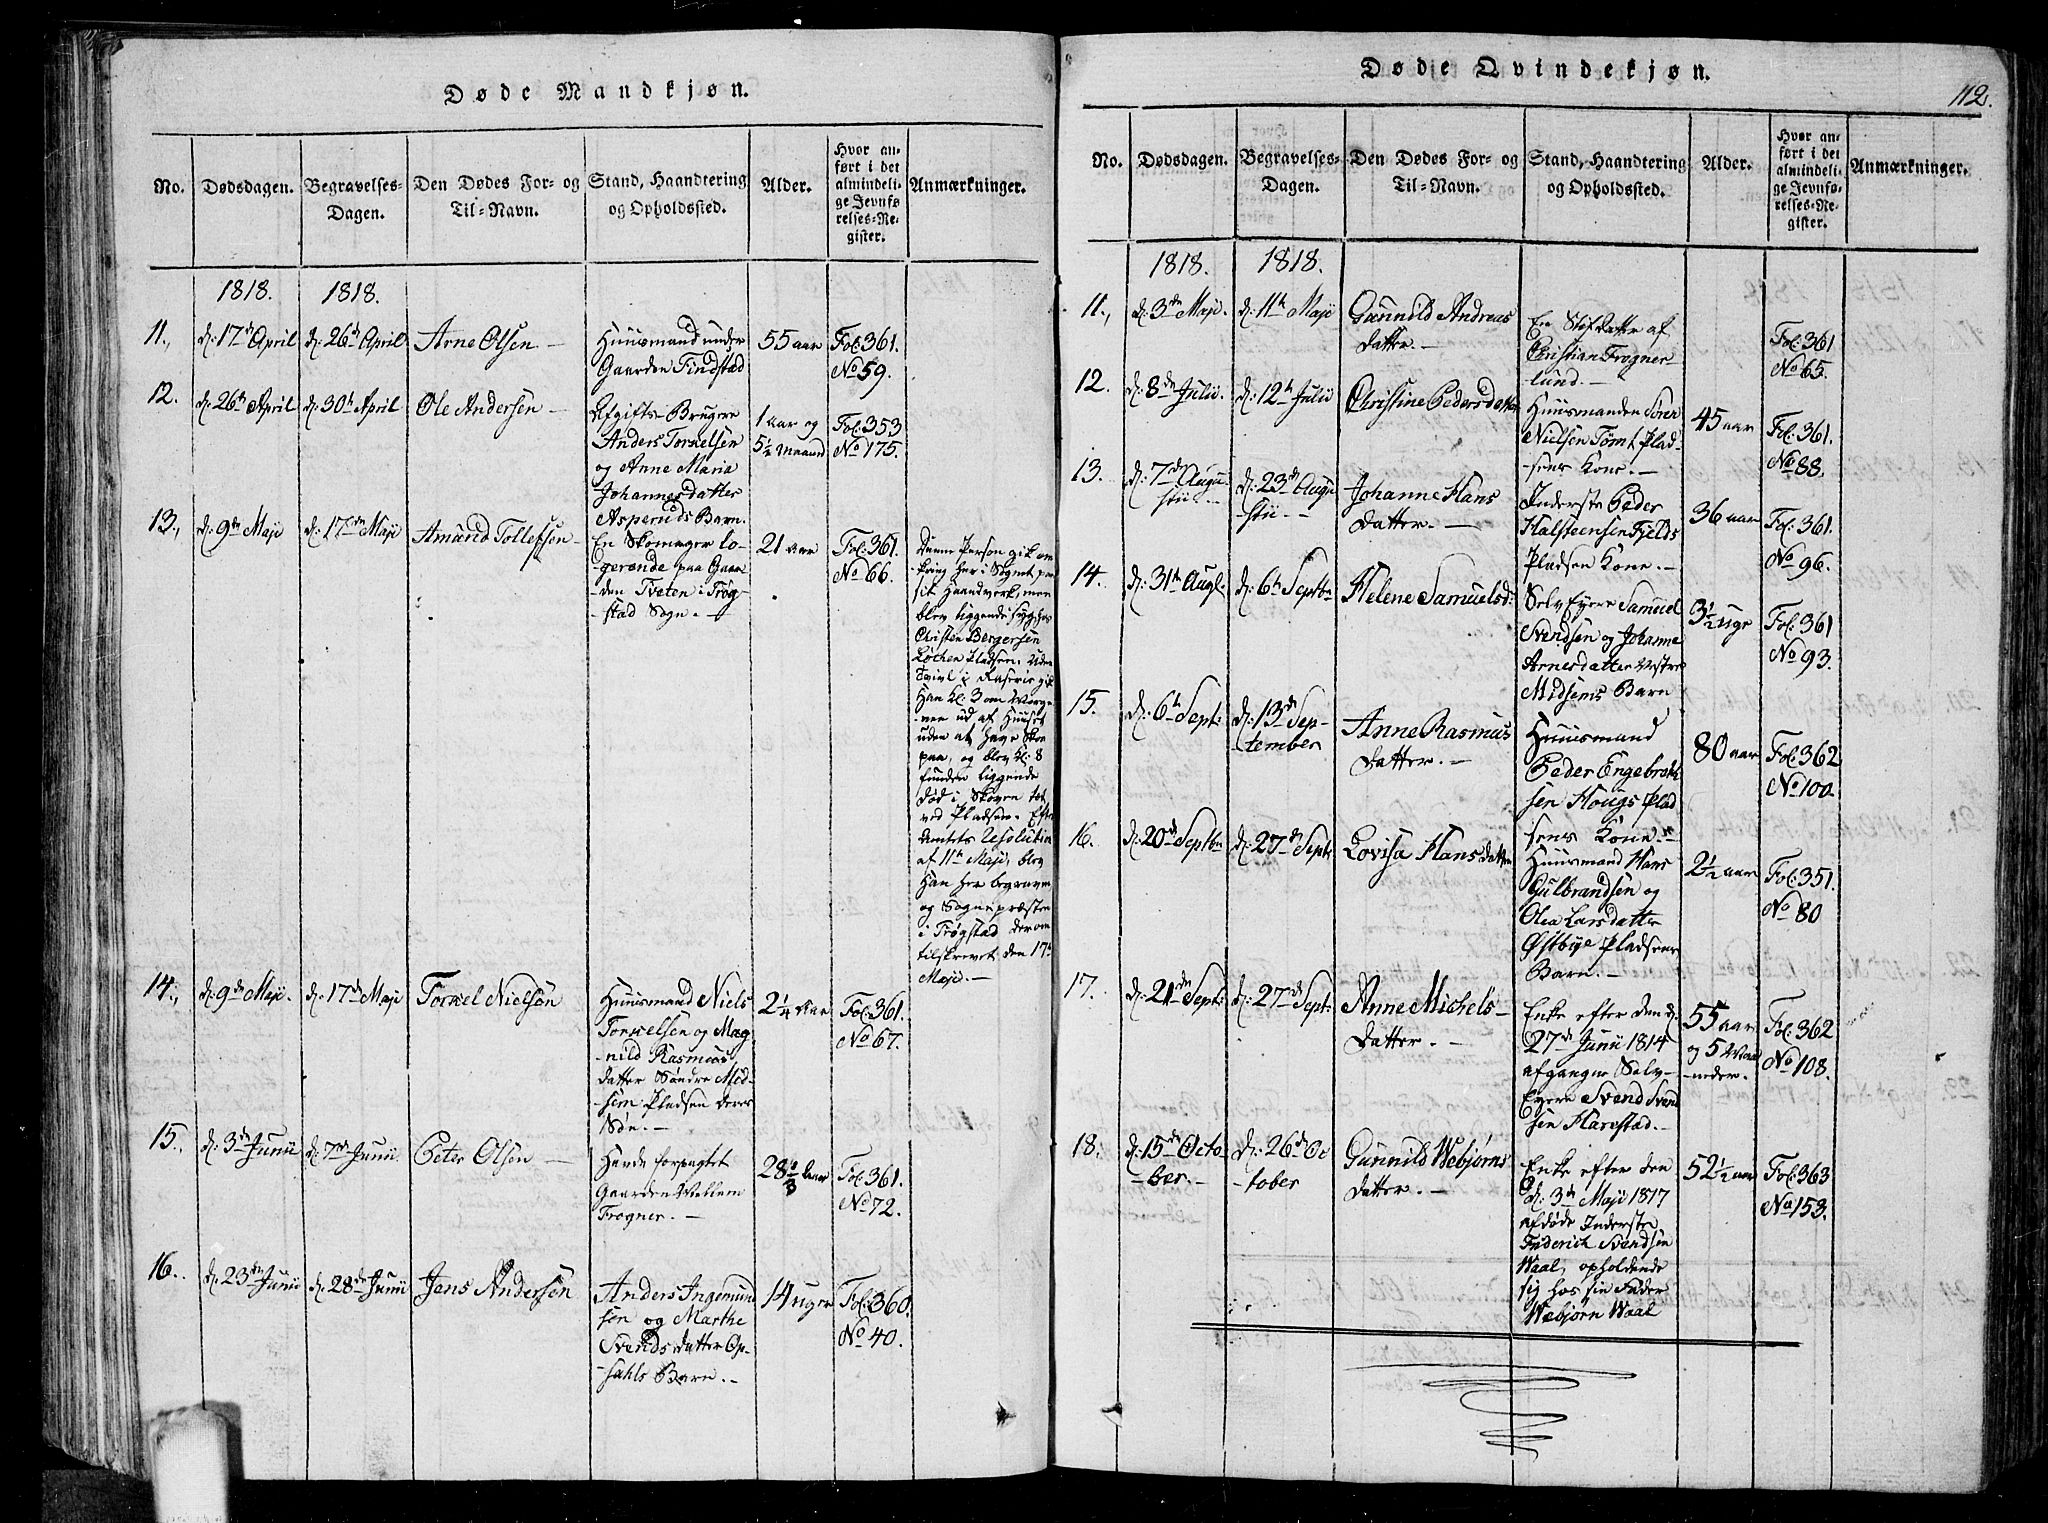 Døde Mandkjøn.
No.
Dødsdagen.
Begravelses-
Dagen.
Den Dødes For- og
Til-Navn.
Stand, Haandtering
og Opholdssted.
Alder.
Hvor an-
ført i det
almindeli-
ge Jevnfø-
relses-Re-
gister.
Anmærkninger.
1818.
1818.
11.,
d: 17de April
d: 26de April
Arne Olsen —
Huusmand under
Gaarden Findstad
55 aar
Fol: 361.
No 59.
12.
d: 26th April
d: 30th April
Ole Andersen —
Afgifts-Bruger
Anders Torkelsen
og Anne Maria
Johannesdatter
Asperuds Barn.
1 aar og
5½ Maaned
Fol: 353
No 175.
13.,
d: 9de Maji
d: 17de Maji
Amund Tollefsen —
En Skomager lo-
gerende paa Gaar
den Tveten i Trøg-
stad Sogn. —
21 aar
Fol: 361.
No 66.
Denne Person gik om
kring her i Sognet paa
sit Haandverk, men
blev liggende syg hos
Christen Bergersen
Løcken Pladsen. Uden
Tvivl i Raserie gik
Han Kl. 3 om Morge
nen ud af Huuset
uden at have Skoe
paa, og blev Kl: 8
funden liggende
død i Skoven tæt
ved Pladsen. Efter
Amtets Resolution
af 11th Maji, blev
Han her begraven
og Sognepræsten
i Trøgstad derom
tilskrevet den 17de
Maji. —
14.,
d: 9de Maji.
d: 17de Maji
Torkel Nielsen
Huusmand Niels
Torkelsen og Mag
nild Rasmus
datter Søndre Mid-
sem Pladsen deres
Søn. —
2¼ Aar
Fol: 361.
No 67.
15.
d: 3de Junii
d: 7de Junii.
Peter Olsen —
Havde forpagtet
Gaarden Mellem
Frogner. —
28⅔ Aar
Fol: 361.
No 72.
16..
d: 23de Junii
d: 28de Junii
Jens Andersen
Anders Ingemund
sen og Marthe
Svendsdatter Op-
sahls Barn. —
14 uger
Fol: 360.
No 40.
Døde Qvindekjøn.
112.
No.
Dødsdagen.
Begravelses-
Dagen.
Den Dødes For- og
Til-Navn.
Stand, Haandtering
og Opholdssted.
Alder.
Hvor an-
ført i det
almindeli-
ge Jevnfø-
relses-Re-
gister.
Anmærkninger.
1818.
1818.
11.,
d: 3de Maji.
d: 11th Maji
Gunnild Andreas
datter. —
En Stefdatter af
Christian Frogner
lund. —
Fol: 361
No 65.
12.
d: 8de Julii.
d: 12th Julii
Christine Pedersdatter
Huusmanden Søren
Nielsen Tømt Plad-
sens Kone. —
45 aar
Fol: 361.
No 88.
13.
d: 7de Augu-
stii. —
d: 23de Augu
stii —
Johanne Hans
datter. —
Inderste Peder
Halsteensen Fjelds
Pladsen Kone. —
36 aar
Fol: 361.
No 96.
14.
d: 31th Aug:
d: 6th Septbr
Helene Samuelsd:
Selv Eyere Samuel
Svendsen og Johanne
Arnesdatter Vestre
Midsems Barn
3½ uge
Fol: 361
No 93.
15.
d: 6th Sept:
d: 13de Sep-
tember
Anne Rasmus
datter. —
Huusmand
Peder Engebret
sen Hougs Plad
sens Kone. —
80 aar
Fol: 362
No 100
16.
d: 20de Septbr
d: 27de Sept:
Lovisa Hansdatter
Huusmand Hans
Gulbrandsen og
Olea Larsdatter
Østbye Pladsens
Barn. —
2½ aar
Fol: 351.
No 80
17.
d: 21de Sept:
d: 27de Sept:
Anne Michels-
datter. —
Enke efter den d.
27de Junii 1814
afgangne Selv-
Eyere Svend Svend
sen Harestad. —
55 aar
og 5 Maa
neder.
Fol: 362
No 108.
18.
d: 15de Octo-
ber. —
d: 26de Oc
tober
Gunnild Webjørns
datter. —
Enke efter den
d: 3de Maji 1817
afdøde Inderste
Friderich Svendsen
Waal, opholdende
sig hos sin Fader
Webjørn Waal
52½ aar
Fol: 363
No 153.